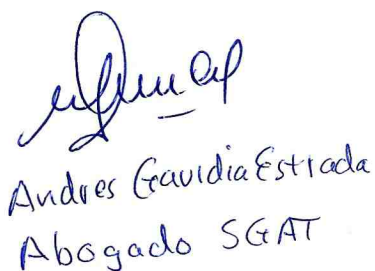 Andres Gavidia Estrada
Abogado SGAT